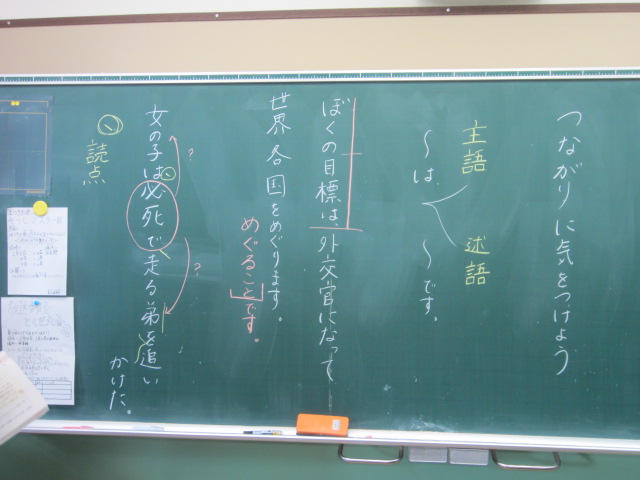 つながりに気をつけよう
主語
述語
〜は
〜です。
ぼくの目標は外交官になって
世界各国をめぐります。
めぐること です。
女の子は必死で走る弟を追い
かけた。
?
?
、
読点